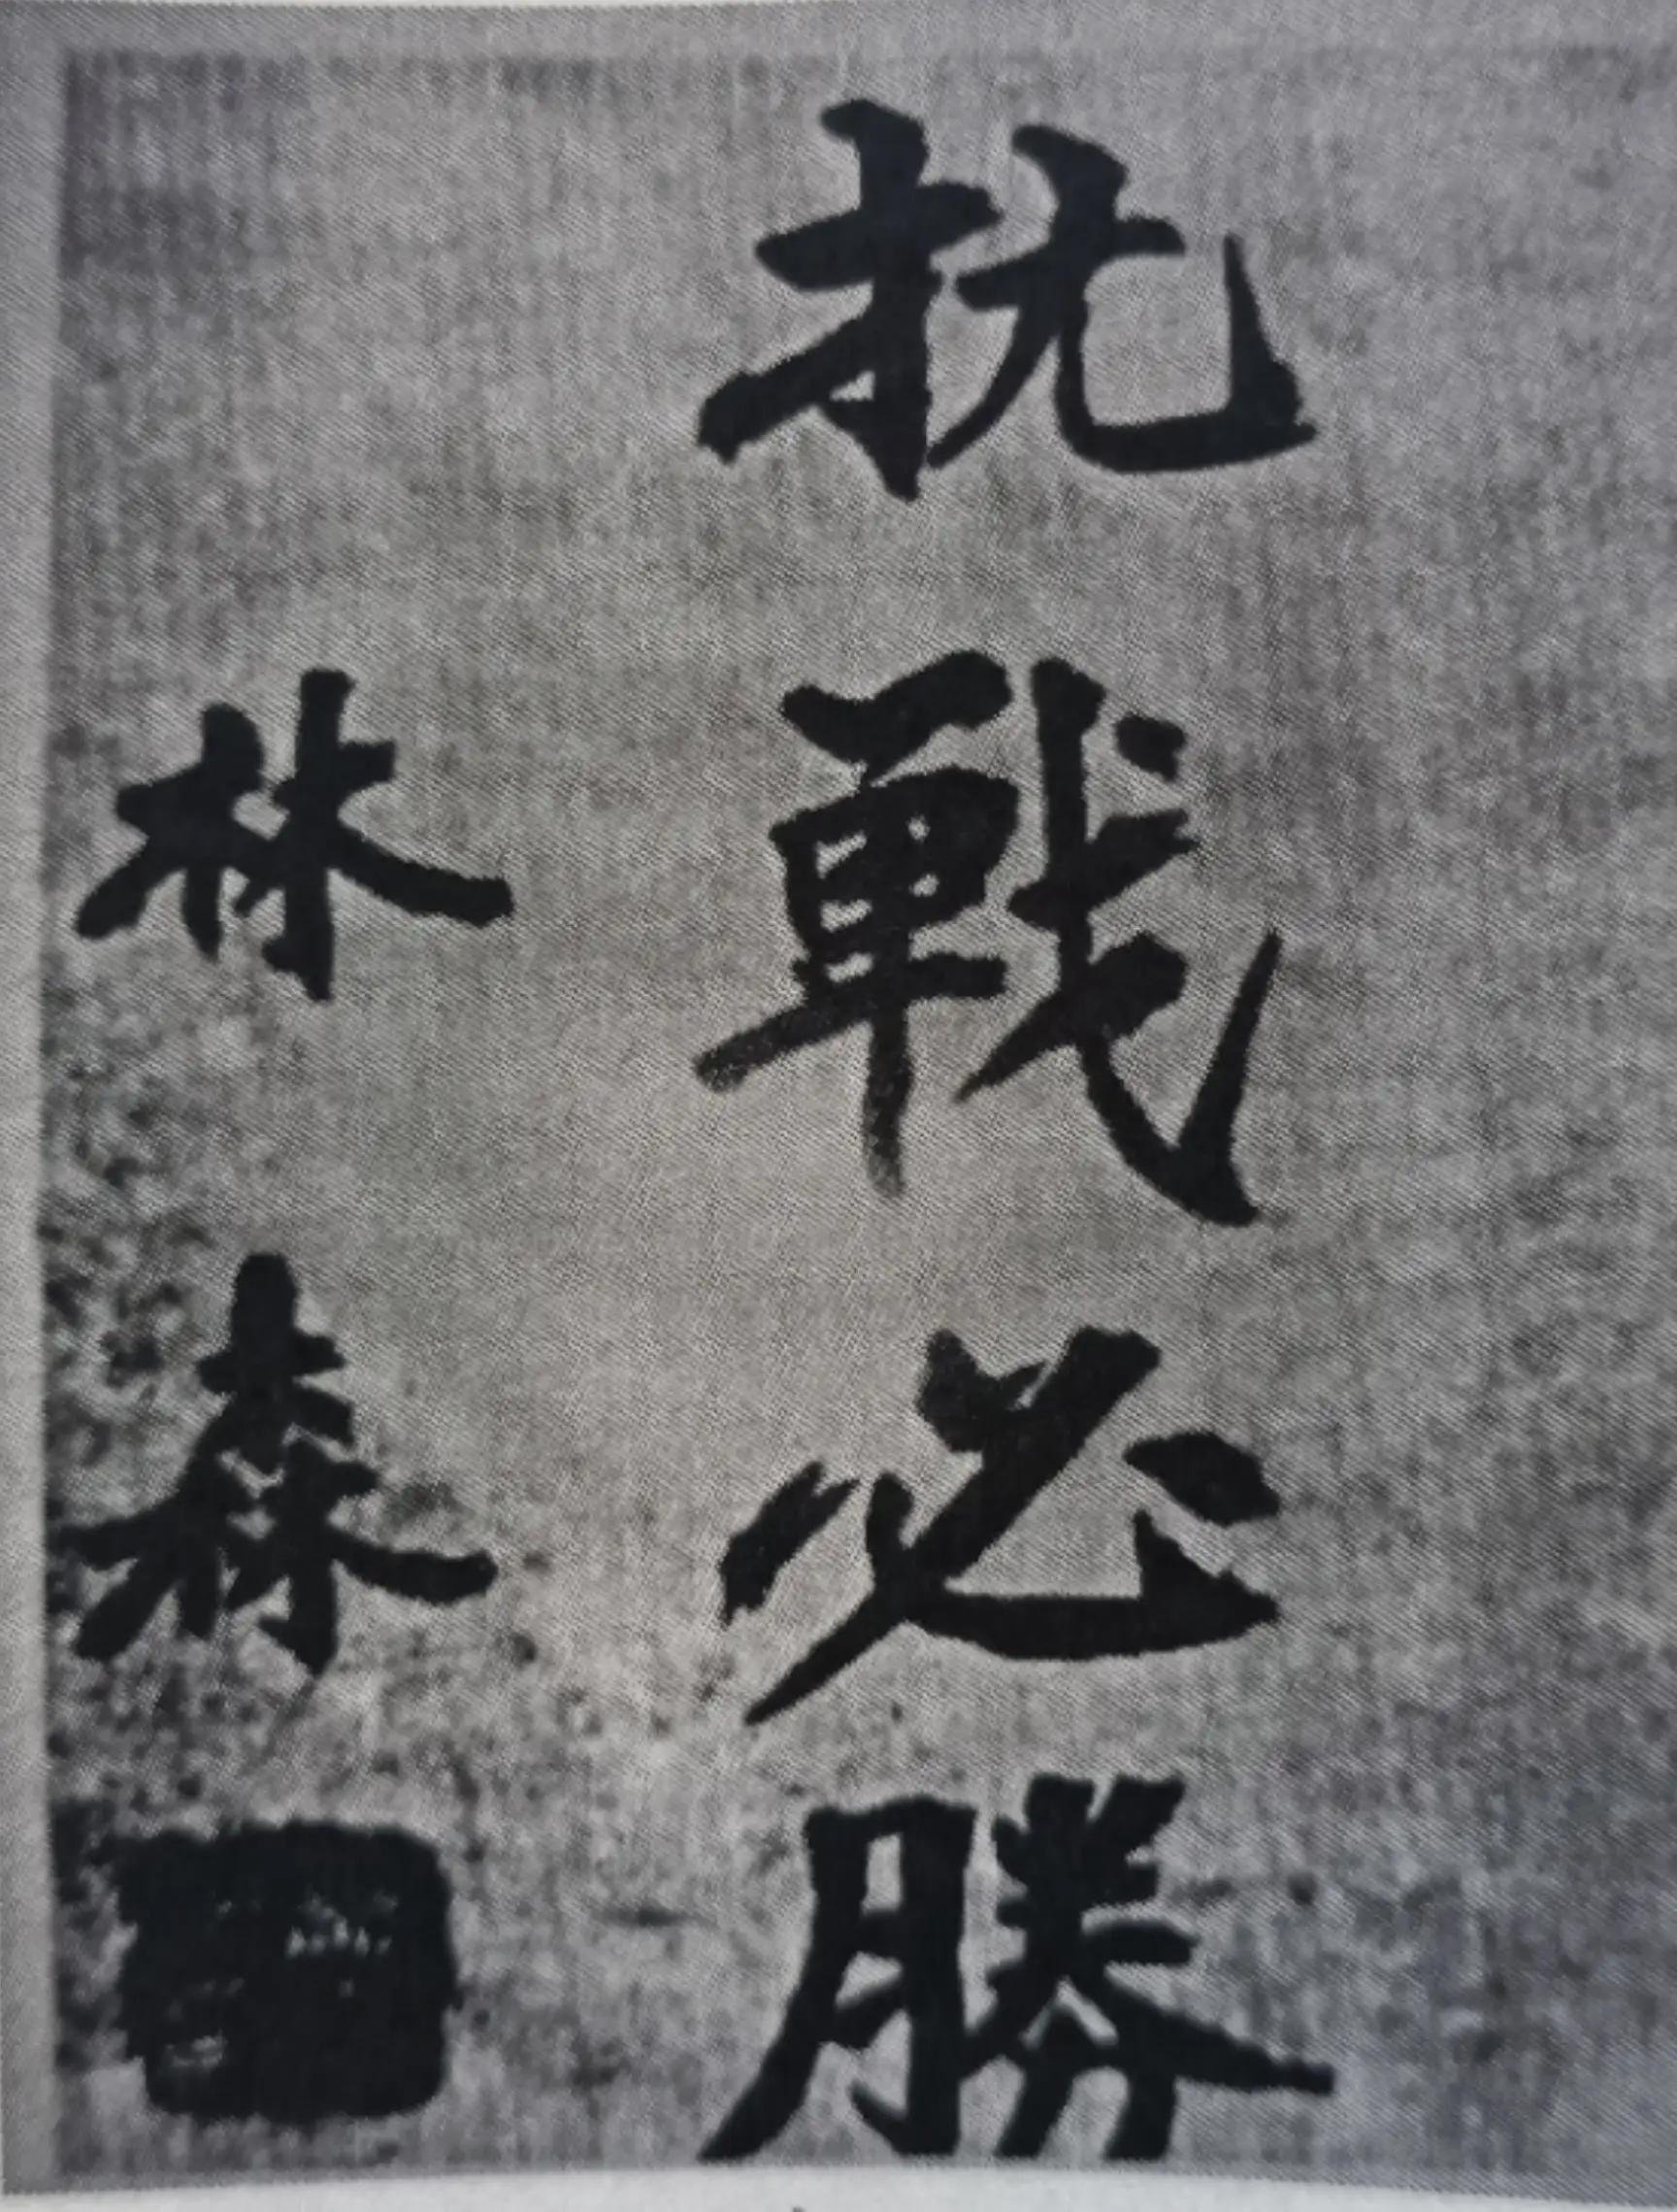 抗戰必勝
林森